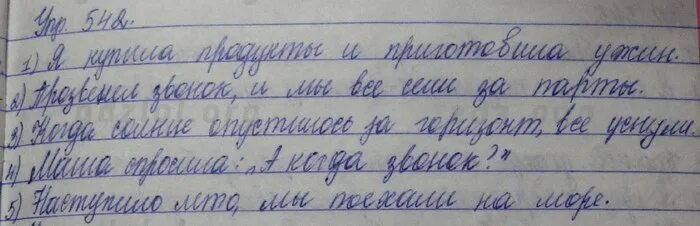 Упр. 542.
1) Я купила продукты и приготовила ужин.
2) Прозвенел звонок, и мы все сели за парты.
3) Когда солнце опустилось за горизонт, все уснули.
4) Маша спросила: „А когда звонок?"
5) Наступило лето, мы поехали на море.